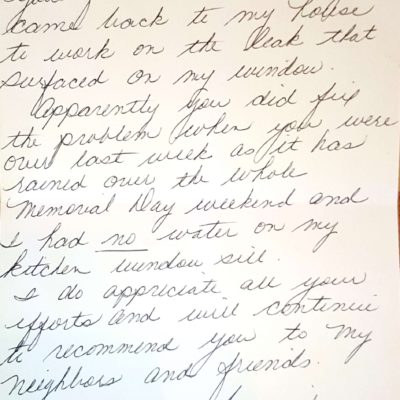 came back to my house
to work on the leak that
surfaced on my window.
Apparently you did fix
the problem when you were
over last week as it has
rained over the whole
Memorial Day weekend and
I had no water on my
kitchen window sill.
I do appreciate all your
efforts and will continue
to recommend you to my
neighbors and friends.